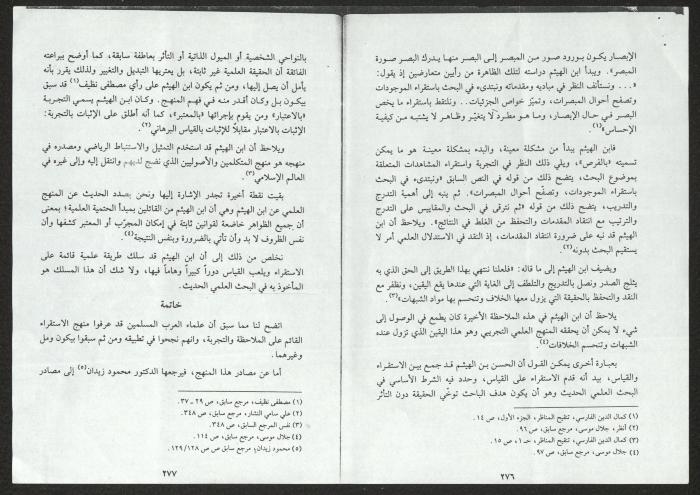 الإبصار يكون بورود صور من المبصر إلى البصر منها يدرك البصر صورة
المبصر». ويبدأ ابن الهيثم دراسته لتلك الظاهرة من رأيين متعارضين إذ يقول:
«... ونستأنف النظر في مباديه ومقدماته ونبتدىء في البحث باستقراء الموجودات
وتصفح أحوال المبصرات، وتميّز خواص الجزئيات.. ونلتقط باستقراء ما يخص
البصر في حال الإبصار، وما هو مطرد لا يتغيّر وظاهر لا يشتبه من كيفية
الإحساس»(١).
فابن الهيثم يبدأ من مشكلة معينة، والبدء بمشكلة معينة هو ما يمكن
تسميته «بالفرض»، ويلي ذلك النظر في التجربة واستقراء المشاهدات المتعلقة
بموضوع البحث، يتضح ذلك من قوله في النص السابق «ونبتدىء في البحث
باستقراء الموجودات، وتصفّح أحوال المبصرات». ثم ينبه إلى أهمية التدرج
والتدريب، يتضح ذلك من قوله «ثم نترقى في البحث والمقاييس على التدرج
والترتيب مع انتقاد المقدمات والتحفظ من الغلط في النتائج». ويلاحظ أن ابن
الهيثم قد نبه على ضرورة انتقاد المقدمات، إذ النقد في الاستدلال العلمي أمر لا
يستقيم البحث بدونه(٢).
ويضيف ابن الهيثم إلى ما قاله: «فلعلنا ننتهي بهذا الطريق إلى الحق الذي به
يثلج الصدر ونصل بالتدريج والتلطف إلى الغاية التي عندها يقع اليقين، ونظفر مع
النقد والتحفظ بالحقيقة التي يزول معها الخلاف وتنحسم بها مواد الشبهات»(٣).
يلاحظ أن ابن الهيثم في هذه الملاحظة الأخيرة كان يطمع في الوصول إلى
شيء لا يمكن أن يحققه المنهج العلمي التجريبي وهو هذا اليقين الذي تزول عنده
الشبهات وتنحسم الخلافات(٤).
بعبارة أخرى يمكن القول أن الحسن بن الهيثم قد جمع بين الاستقراء
والقياس، بيد أنه قدم الاستقراء على القياس، وحدد فيه الشرط الأساسي في
البحث العلمي الحديث وهو أن يكون هدف الباحث توخّي الحقيقة دون التأثر
(١) كمال الدين الفارسي، تنقيح المناظر، الجزء الأول، ص ١٤.
(٢) أنظر، جلال موسى، مرجع سابق، ص ٩٦.
(٣) كمال الدين الفارسي، تنقيح المناظر، حـ ١، ص ١٥.
(٤) جلال موسى، مرجع سابق، ص ٩٧.
٢٧٦
بالنواحي الشخصية أو الميول الذاتية أو التأثر بعاطفة سابقة، كما أوضح ببراعته
الفائقة أن الحقيقة العلمية غير ثابتة، بل يعتريها التبديل والتغيير ولذلك يقرر بأنه
يأمل أن يصل إليها، ومن ثم يكون ابن الهيثم على رأي مصطفى نظيف(١) قد سبق
بيكون بل وكان أقدر منه في فهم المنهج. وكان ابن الهيثم يسمي التجربة
«بالاعتبار» ومن يقوم بإجرائها «بالمعتبر»، كما أنه أطلق على الإثبات بالتجربة:
الإثبات بالاعتبار مقابلاً للإثبات بالقياس البرهاني(٢).
ويلاحظ أن ابن الهيثم قد استخدم التمثيل والاستنباط الرياضي ومصدره في
منهجه هو منهج المتكلمين والأصوليين الذي نضج لديهم وانتقل إليه وإلى غيره في
العالم الإسلامي(٣).
بقيت نقطة أخيرة تجدر الإشارة إليها ونحن بصدد الحديث عن المنهج
العلمي عن ابن الهيثم وهي أن ابن الهيثم من القائلين بمبدأ الحتمية العلمية؛ بمعنى
أن جميع الظواهر خاضعة لقوانين ثابتة في إمكان المجرّب أو المعتبر كشفها وأن
نفس الظروف لا بد وأن تأتي بالضرورة وبنفس النتيجة(٤).
نخلص من ذلك إلى أن ابن الهيثم قد سلك طريقة علمية قائمة على
الاستقراء ويلعب القياس دوراً كبيراً وهاماً فيها، ولا شك أن هذا المسلك هو
المأخوذ به في البحث العلمي الحديث.
خاتمة
اتضح لنا مما سبق أن علماء العرب المسلمين قد عرفوا منهج الاستقراء
القائم على الملاحظة والتجربة، وانهم نجحوا في تطبيقه ومن ثم سبقوا بيكون ومل
وغيرهما.
أما عن مصادر هذا المنهج، فيرجعها الدكتور محمود زيدان(٥) إلى مصادر
(١) مصطفى نظيف، مرجع سابق، ص ٢٩ ـ ٣٧.
(٢) علي سامي النشار، مرجع سابق، ص ٣٤٨.
(٣) نفس المرجع السابق، ص ٣٤٨.
(٤) جلال موسى، مرجع سابق، ص ١١٤.
(٥) محمود زيدان، مرجع سابق، ص ص ١٢٨/١٢٩.
٢٧٧